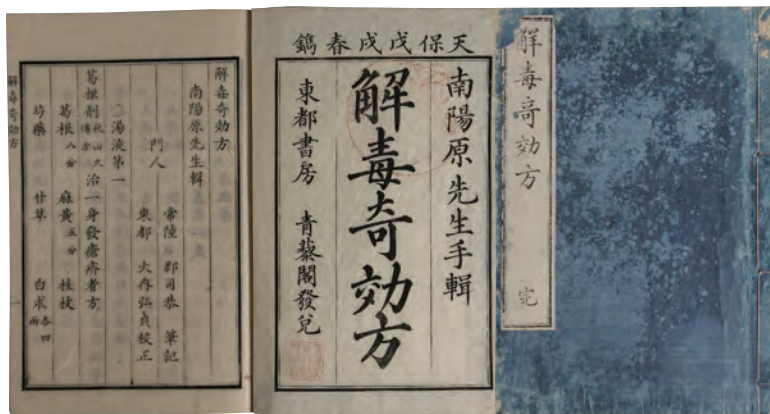 解毒奇効方
完
天保戊戌春鐫
南陽原先生手輯
解毒奇効方
東都書房 青藜閣發兌
解毒奇効方
南陽原先生輯
門人
常陸 郡司恭 筆記
東都 大䧺弘貞校正
○湯液第一
葛根劑 秋山久傳方 治一身發瘡疥者方
葛根 八分 麻黄 五分 桂枝
芍藥 甘草 白朮 各四両
解毒奇効方
一